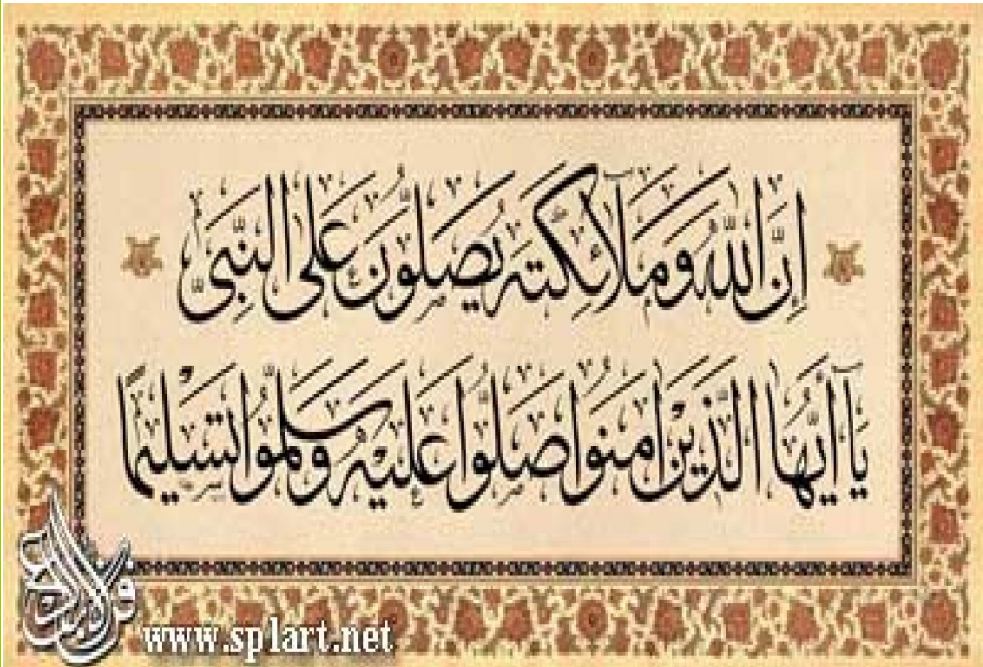 إِنَّ اللَّهَ وَمَلَآئِكَتَهُ يُصَلُّونَ عَلَى النَّبِيِّ
يَآ أَيُّهَا الَّذِينَ آمَنُوا صَلُّوا عَلَيْهِ وَسَلِّمُوا تَسْلِيمًا
www.splart.net